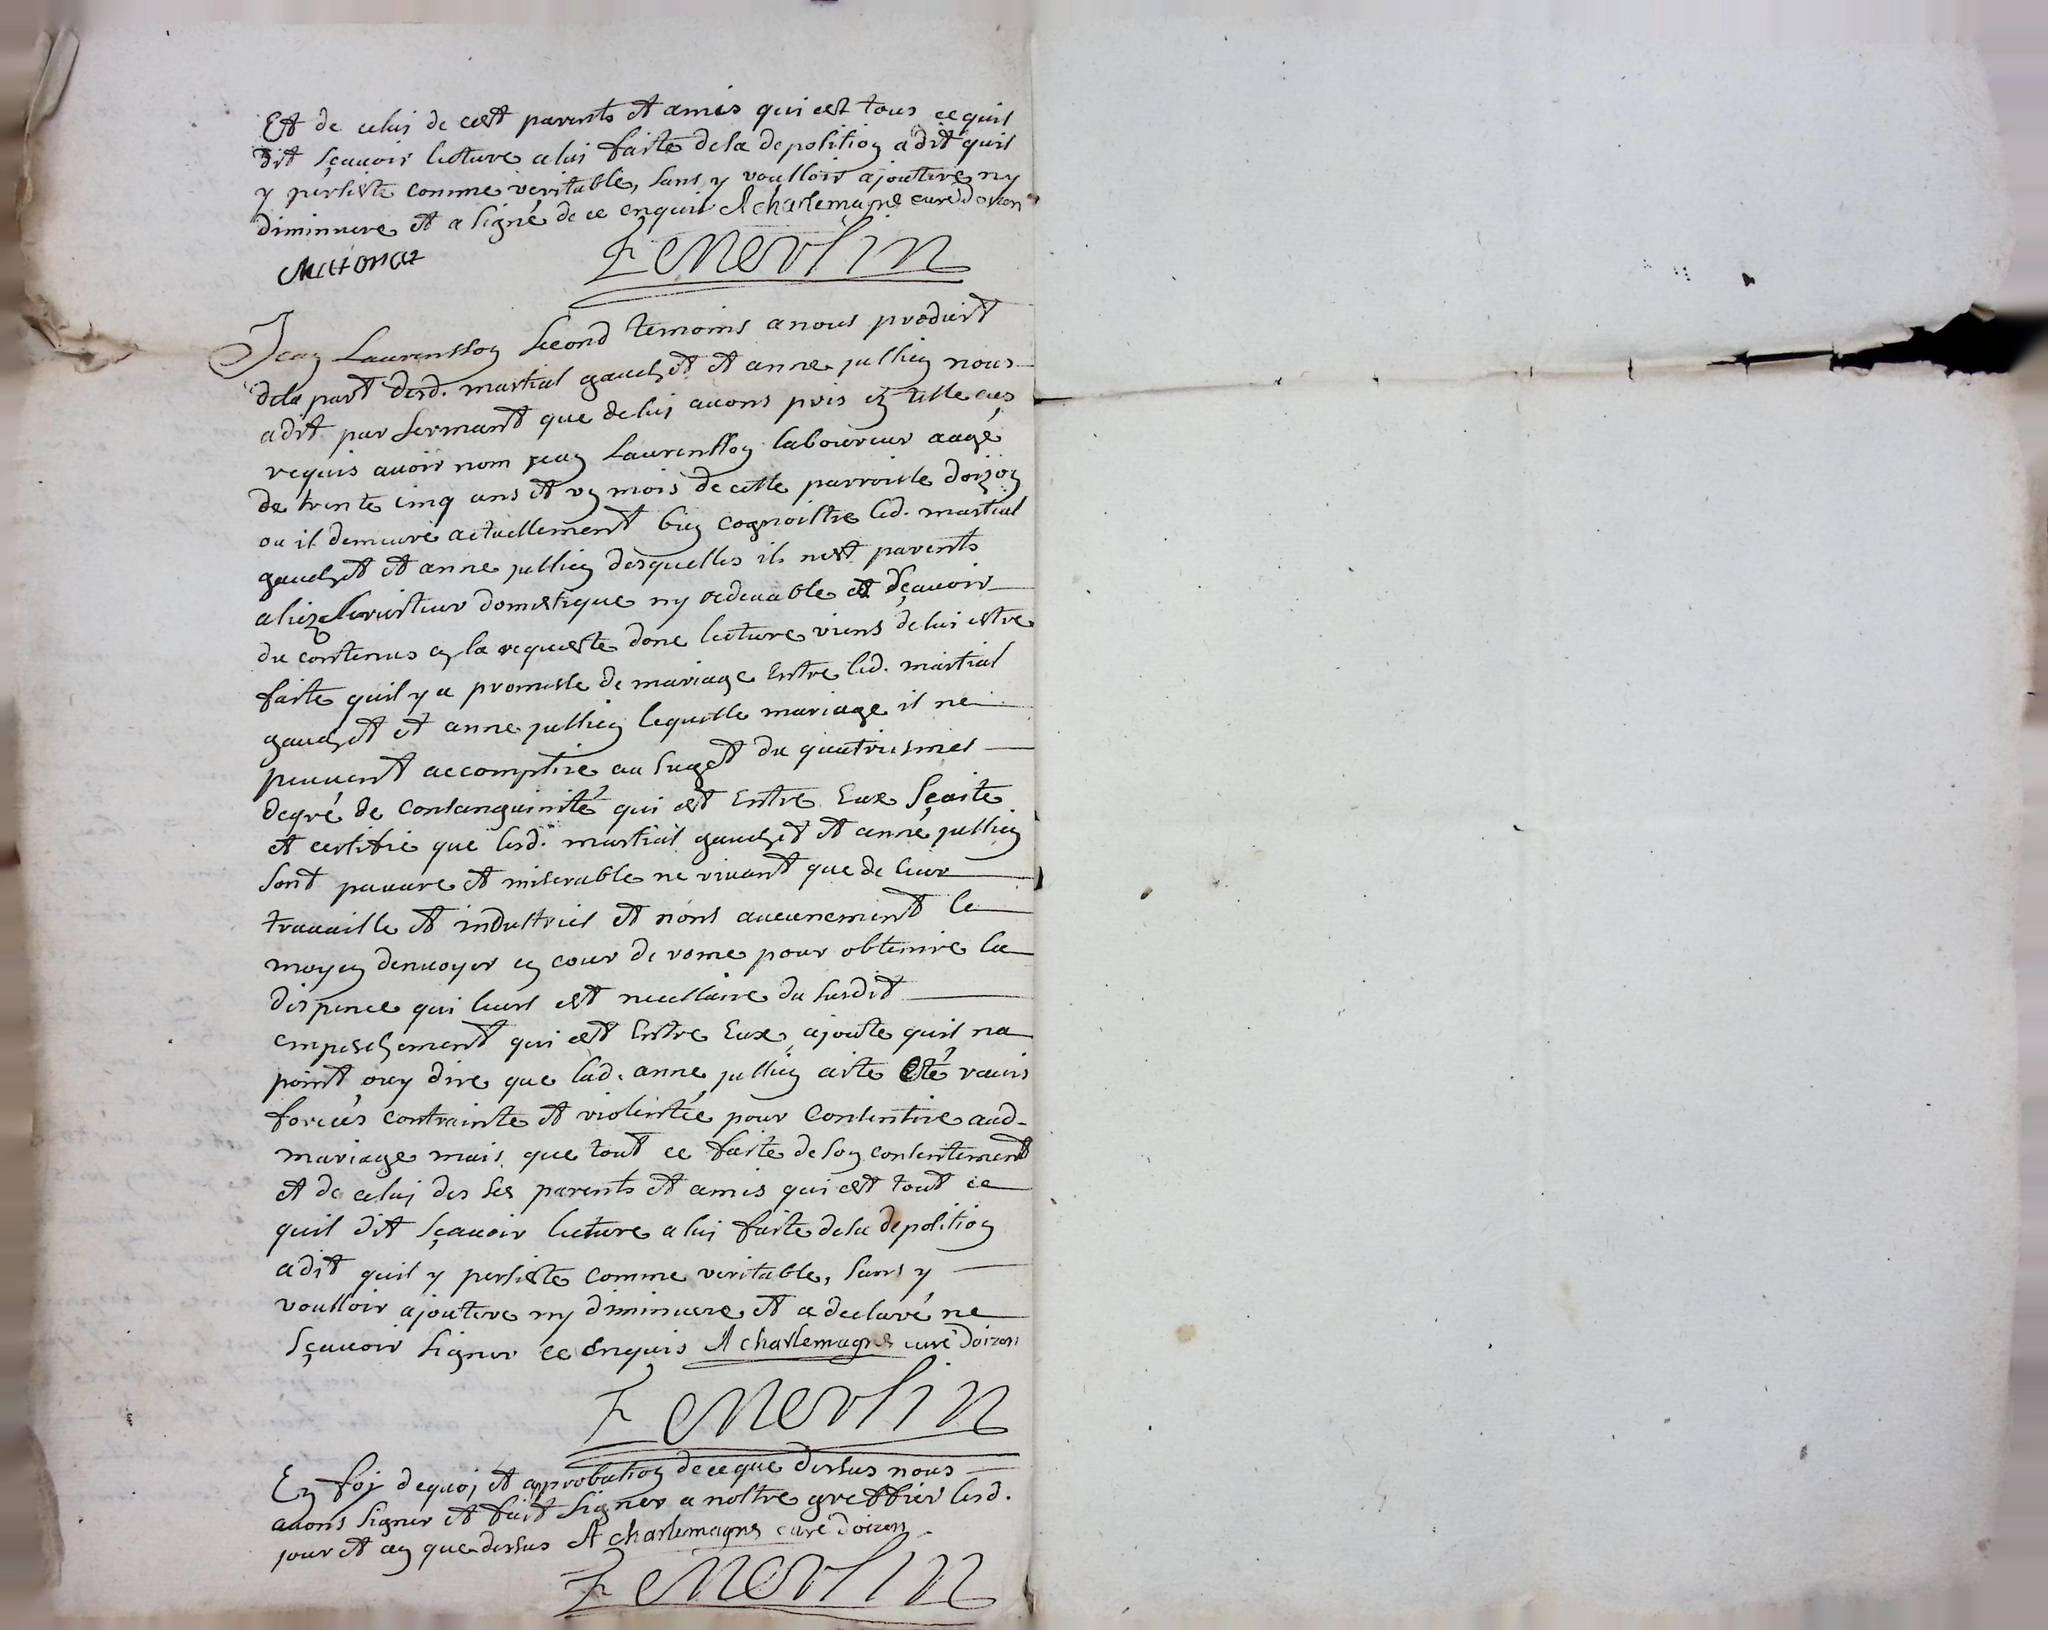 Et de celui de cest parents et amis qui est tous ce quil
dit sçauoir lecture a lui faite de sa deposition a dit quil
y persiste comme veritable, sans y voulloir ajoutere ny
diminuere et a signé de ce enquis A charlemagne curé doizon
F Merlin
Jean Laurensson second temoins a nous produist
de la part desd. martial gauchet et anne jullien nous
a dit par sermant que de lui auons pris en telle cas
requis auoir nom jean Laurensson laboureur aagé
de trente cinq ans et un mois de cette parroisse doizon
ou il demeure actuellement bien cognoistre led. martial
gauchet et anne jullien desquelles il nest parents
aliez seruiteur domestique ny redeuable et sçauoir
du contenus en la requeste donc lecture viens de lui estre
faite quil y a promesse de mariage Entre led. martial
gauchet et anne jullien lequelle mariage il ne
peuuent accomplire au suget du quatriesmes
degré de consanguinité qui est Entre Eux sçaite
et certifie que lesd. martial gauchet et anne jullien
sont pauure et miserable ne viuant que de leur
trauaille et industries et nons aucunement le
moyen denuoyer en cour de rome pour obtenire la
dispence qui leurs est necessaire du susdit
empeschement qui est Entre Eux, ajoute quil na
point ouy dire que lad. anne jullien aite été rauis
forcés contrainte et violentée pour consentire aud.
mariage mais que tout ce faite de son consentement
et de celui des ses parents et amis qui est tout ce
quil dit sçauoir lecture a lui faite de sa deposition
a dit quil y persiste comme veritable, sans y
voulloir ajoutere ny diminuere et a declaré ne
sçauoir signer ce enquis A charlemagne curé doizon
F Merlin
En foi dequoi et approbation de ce que dessus nous
auons signer et fait signer a nostre greffier lesd.
jour et an que dessus A charlemagne curé doizon
F Merlin